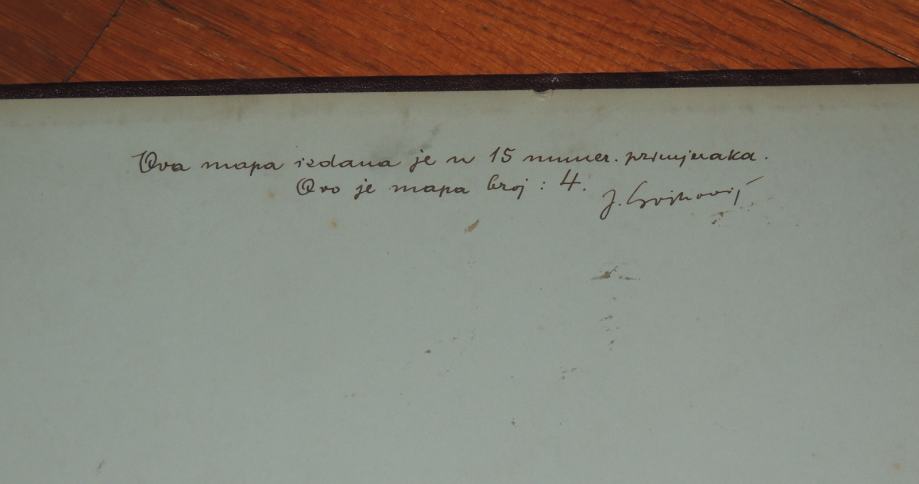 Ova mapa izdana je u 15 numer. primjeraka.
Ovo je mapa broj : 4.
J.